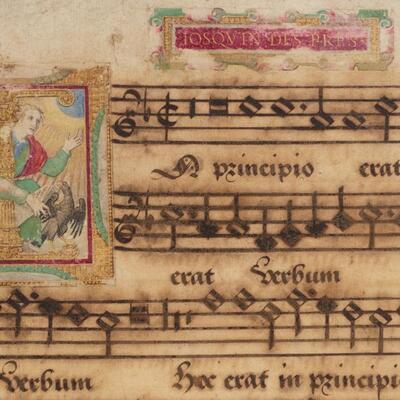 IOSQVIN DES PRES
N principio erat
erat Verbum
Verbum Hoc erat in principi